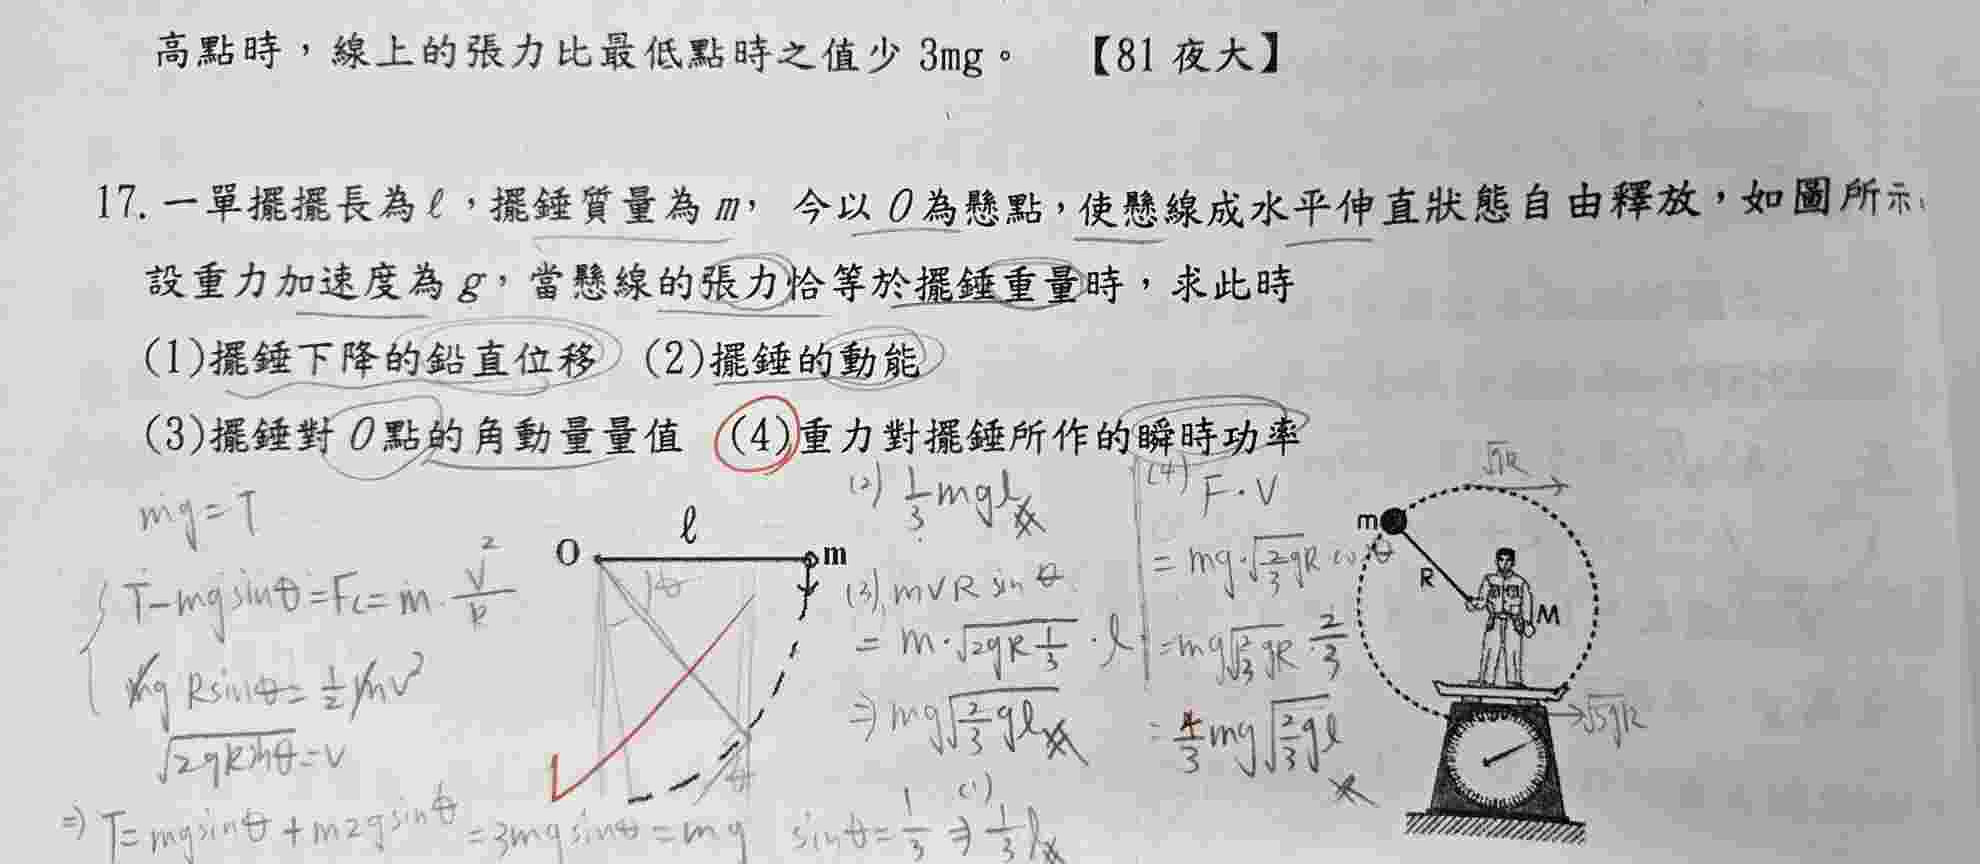 高點時，線上的張力比最低點時之值少 3mg。 【81 夜大】
17. 一單擺擺長為ℓ，擺錘質量為 m， 今以 O 為懸點，使懸線成水平伸直狀態自由釋放，如圖所示。
設重力加速度為 g，當懸線的張力恰等於擺錘重量時，求此時
(1)擺錘下降的鉛直位移 (2)擺錘的動能
(3)擺錘對 O 點的角動量量值 (4)重力對擺錘所作的瞬時功率
mg=T
T-mgsinθ=Fc=m·v²/R
mgRsinθ=½mv²
√2gRsinθ=v
⇒ T=mgsinθ+m2gsinθ=3mgsinθ=mg sinθ=1/3 ⇒ (1) 1/3 ℓ
O ℓ m
θ
(2) 1/3 mgℓ
(3) mvR sinθ
= m·√2gR1/3 ·ℓ
⇒ mg√2/3 gℓ
(4) F·V
= mg·√2/3 gR cosθ
= mg√2/3 gR · 2/3
=
mg√2/3 gℓ
√gR
m
R
M
√5gR